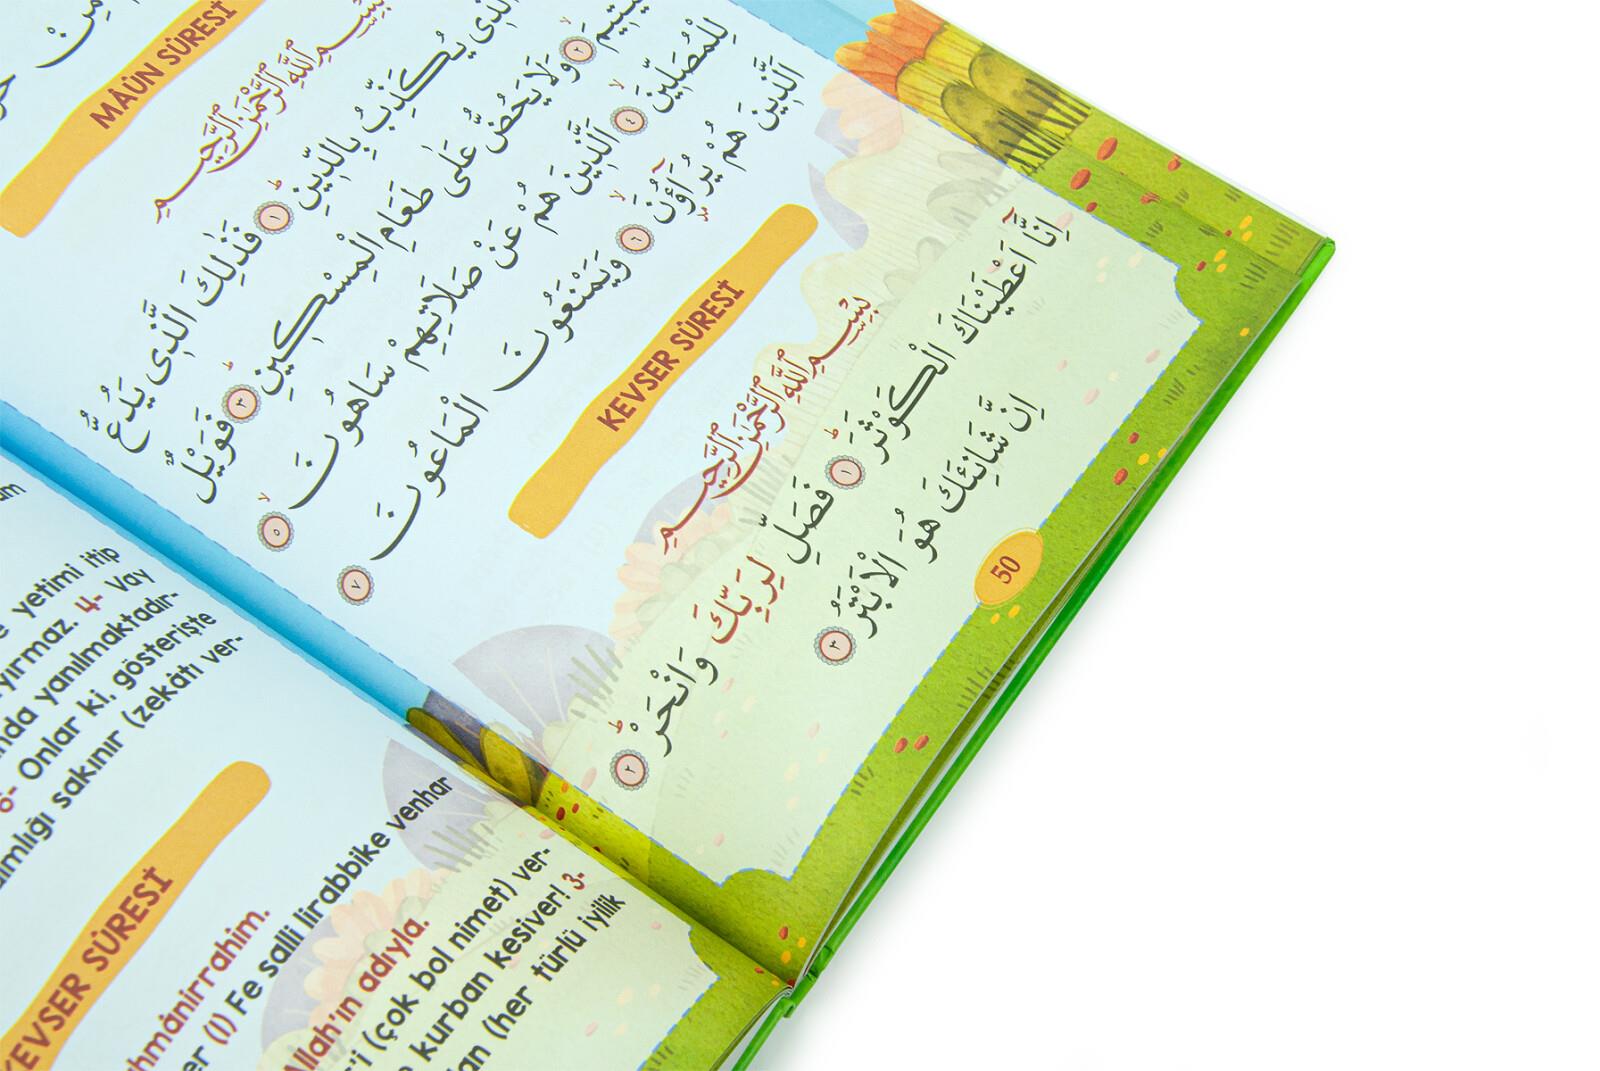 مِنْ
MÂÛN SÛRESİ
بِسْمِ اللّٰهِ الرَّحْمٰنِ الرَّحيمِ
يُكَذِّبُ بِالدّينِ ﴿١﴾ فَذٰلِكَ الَّذى يَدُعُّ
﴿٢﴾ وَلَا يَحُضُّ عَلٰى طَعَامِ الْمِسْكينِ ﴿٣﴾ فَوَيْلٌ
لِلْمُصَلّينَ ﴿٤﴾ اَلَّذينَ هُمْ عَنْ صَلَاتِهِمْ سَاهُونَ ﴿٥﴾
اَلَّذينَ هُمْ يُرَٓاؤُنَ ﴿٦﴾ وَيَمْنَعُونَ الْمَاعُونَ ﴿٧﴾
KEVSER SÛRESİ
بِسْمِ اللّٰهِ الرَّحْمٰنِ الرَّحيمِ
اِنَّٓا اَعْطَيْنَاكَ الْكَوْثَرَ ﴿١﴾ فَصَلِّ لِرَبِّكَ وَانْحَرْ ﴿٢﴾
اِنَّ شَانِئَكَ هُوَ الْاَبْتَرُ ﴿٣﴾
50
yetimi itip
4- Vay
yanılmaktadır-
Onlar ki, gösterişte
sakınır (zekâtı ver-
KEVSER SÛRESİ
(1) Fe salli lirabbike venhar
Allah'ın adıyla.
(çok bol nimet) ver-
kurban kesiver! 3-
(her türlü iyilik